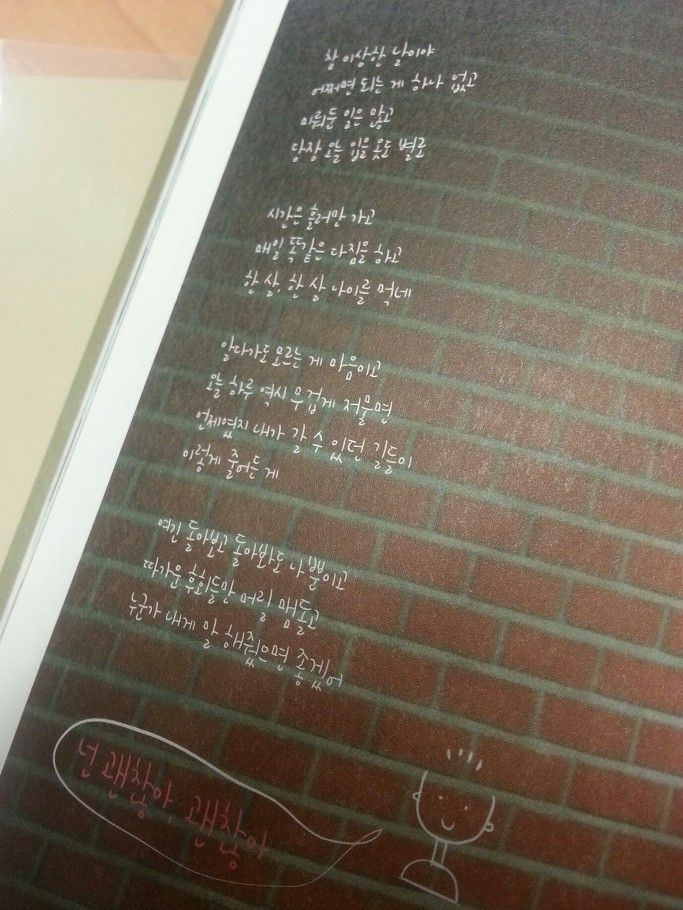 참 이상한 날이야
어쩌면 되는 게 하나 없고
미뤄둔 일은 많고
당장 오늘 입을 옷도 별로
시간은 흘러만 가고
매일 똑같은 다짐을 하고
한 살, 한 살 나이를 먹네
알다가도 모르는 게 마음이고
오늘 하루 역시 무겁게 저물면
언제였지 내가 갈 수 있던 길들이
이렇게 줄어든 게
여긴 돌아보고 돌아봐도 나 뿐이고
따가운 후회들만 머리 맴돌고
누군가 내게 말 해줬으면 좋겠어
넌 괜찮아, 괜찮아